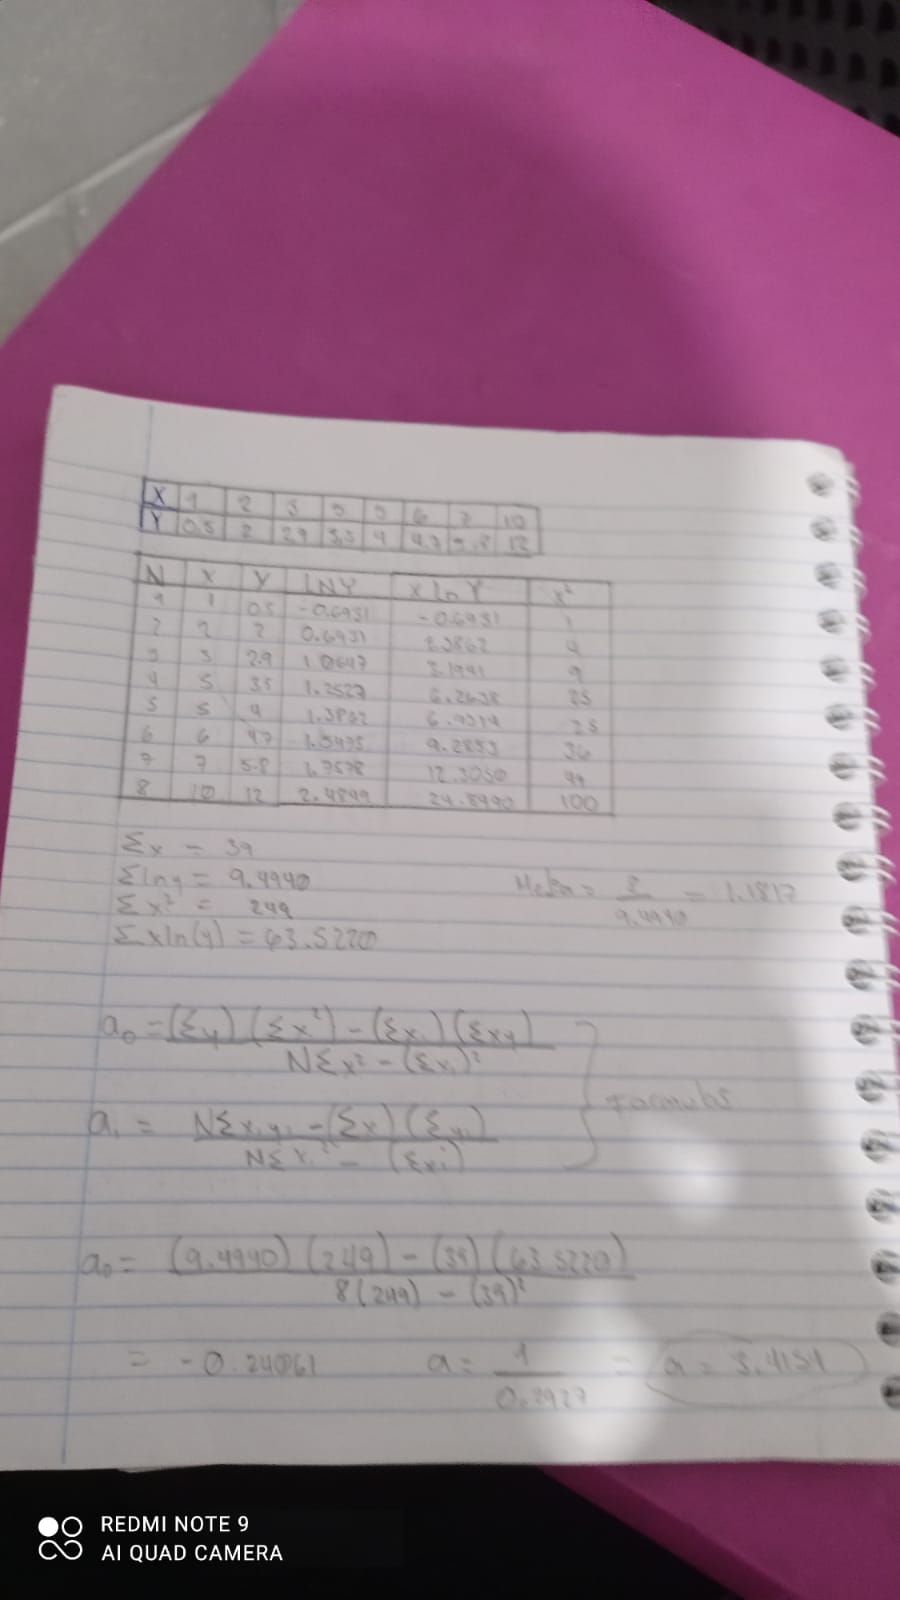 X 1 2 3 5 5 6 7 10
Y 0.5 2 2.9 3.5 4 4.7 5.8 12
N X Y LNY X ln Y X²
1 1 0.5 -0.6931 -0.6931 1
2 2 2 0.6931 1.3862 4
3 3 2.9 1.0647 3.1941 9
4 5 3.5 1.2527 6.2638 25
5 5 4 1.3862 6.9314 25
6 6 4.7 1.5475 9.2853 36
7 7 5.8 1.7578 12.3050 49
8 10 12 2.4849 24.8490 100
Σx = 39
Σlny = 9.4940
Σx² = 249
Σxln(y) = 63.5220
= 8 / 9.4940 = 1.1817
a₀ = (Σy)(Σx²) - (Σxᵢ)(Σxy) / NΣx² - (Σxᵢ)²
a₁ = NΣxᵢyᵢ - (Σx)(Σyᵢ) / NΣxᵢ² - (Σxi)
Formulas
a₀ = (9.4940)(249) - (39)(63.5220) / 8(249) - (39)²
= -0.24061 a = 1 / 0.2927 = a = 3.4154
REDMI NOTE 9
AI QUAD CAMERA